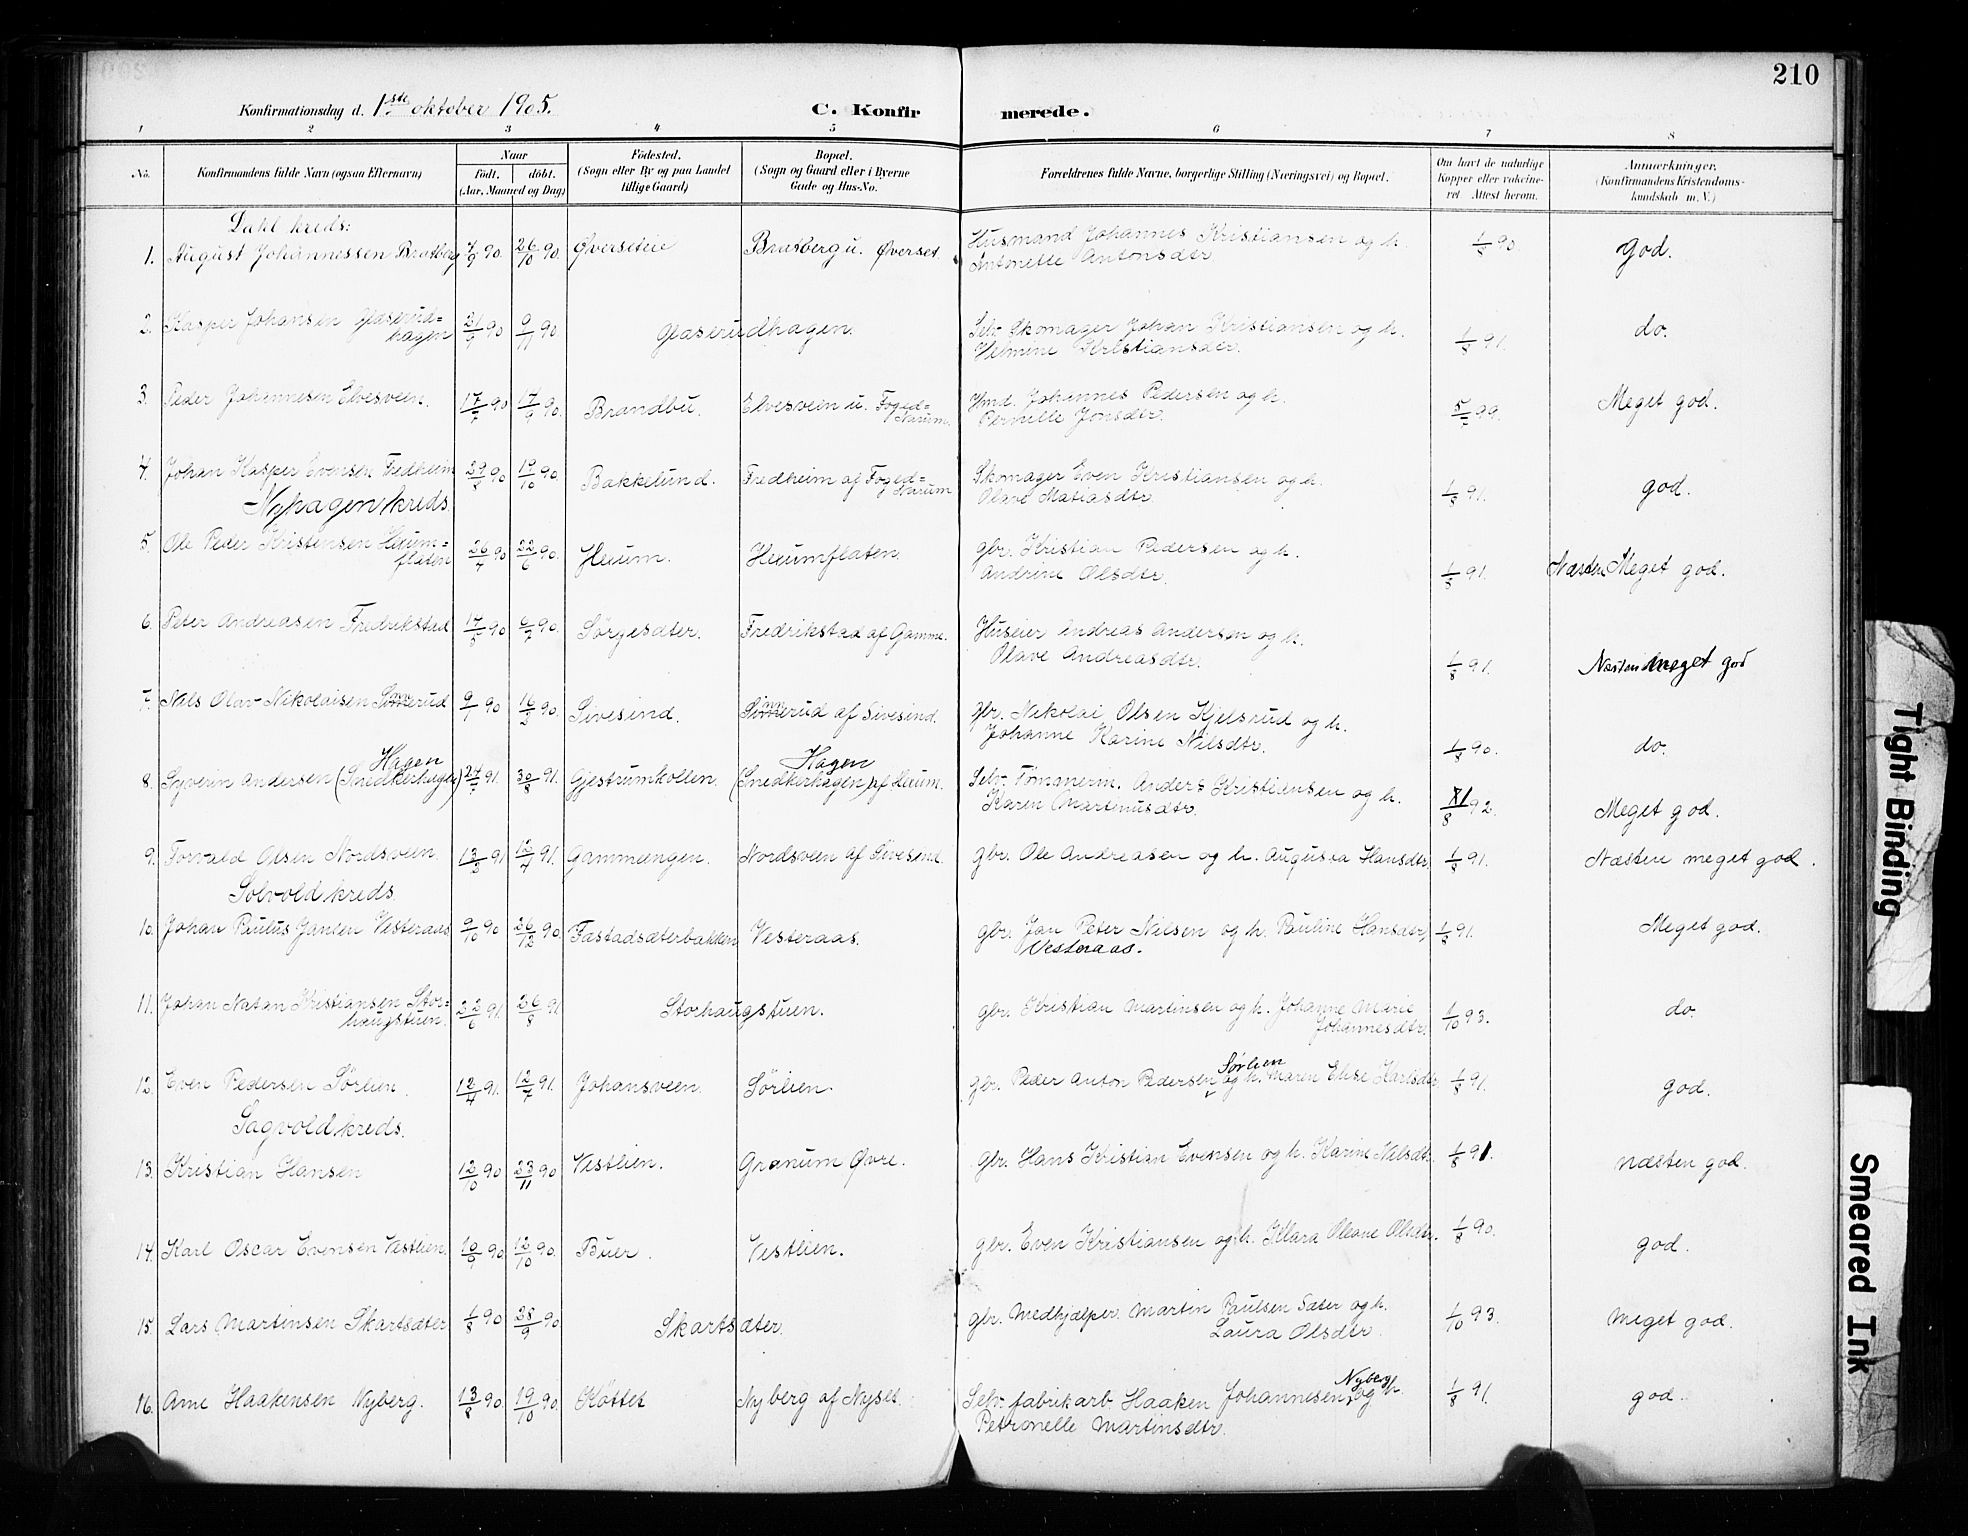 210
Konfirmationsdag d. 1ste oktober 1905. C. Konfirmerede.
1 2 3 4 5 6 7 8
No. Konfirmandens fulde Navn (ogsaa Efternavn) Naar Født. døbt. (Aar, Maaned og Dag) Fødested. (Sogn eller By og paa Landet tillige Gaard) Bopæl. (Sogn og Gaard eller i Byerne Gade og Hus-No. Forældrenes fulde Navne, borgerlige Stilling (Næringsvei) og Bopæl. Om havt de naturlige Kopper eller vakcineret Attest herom. Anmerkninger. (Konfirmandens Kristendomskundskab m. V.)
Dahl kreds:
1. August Johannessen Bratberg 7/9 90 26/10 90. Øverseteie Bratberg u. Øverset. Husmand Johannes Kristiansen og h. 1/8 90 God.
Antonette Antonsdtr
2. Kasper Johansen Glaserud= 21/9 90 9/11 90 Glaserudhagen. Selv. Skomager Johan Kristiansen og h. 1/8 91. do.
hagen Helmine Kristiansdtr.
3. Peder Johannesen Elvesveen. 17/7 90 14/9 90. Brandbu. Elvesveen u. Foged= Hmd. Johannes Pedersen og h. 5/7 99. Meget god.
Narum. Pernille Jonsdtr.
4. Johan Kasper Evensen Fredheim 29/8 90 19/10 90. Bakkelund. Fredheim af Foged= Skomager Even Kristiansen og h. 1/8 91. god.
Narum Olave Matiasdtr.
Nyhagen kreds.
5. Ole Peder Kristensen Heum= 26/4 90 22/6 90. Heum. Heumflaten. gbr. Kristian Pedersen og h. 1/8 91. Næsten Meget god.
flaten Andrine Olsdtr.
6. Peter Andreasen Fredrikstad 14/5 90 6/7 90. Sørgesæter. Fredrikstad af Gamme. Huseier Andreas Andersen og h. 1/8 91. Næsten meget god
Olave Andreasdtr.
7. Nils Olav Nikolaisen Simerud 9/1 90 16/3 90. Sivesind. Simerud af Sivesind. gbr. Nikolai Olsen Kjelsrud og h. 1/8 90. do.
Johanne Karine Nilsdtr.
Hagen Hagen
8. Syverin Andersen (Snedkerhagen) 24/7 91. 30/8 91. Gjestrumkollen. (Snedkerhagen) af Heum. Selv. Tømmerm. Anders Kristiansen og h. 1/8 92. Meget god.
Karen Martinusdtr.
9. Torvald Olsen Nordsveen. 13/3 91 12/4 91. Gammengen. Nordsveen af Sivesind. gbr. Ole Andreasen og h. Augusta Hansdtr. 1/8 91. Næsten meget god.
Solvold kreds.
10. Johan Paulus Jansen Vesteraas 9/10 90 26/12 90. Fastadsæterbakken Vesteraas. gbr. Jan Peter Nilsen og h. Pauline Hansdtr, 1/8 91. Meget god.
Vesteraas.
11. Johan Natan Kristiansen Stor= 22/6 91. 26/8 91 Storhaugstuen. gbr. Kristian Martinsen og h. Johanne Marie 1/10 93. do.
haugstuen. Johannesdtr.
Sørlien
12. Even Pedersen Sørlien. 12/4 91. 12/7 91. Johansveen. Sørlien. gbr. Peder Anton Pedersen og h. Maren Elise Karlsdtr 1/8 91. god.
Sagvold kreds.
13. Kristian Hansen 12/10 90 23/11 90 Vestlien. Granum Øvre. gbr. Hans Kristian Evensen og h. Karine Nilsdtr. 1/8 91. næsten god.
14. Karl Oscar Evensen Vestlien. 10/9 90 12/10 90. Buer. Vestlien. gbr. Even Kristiansen og h. Klara Oleane Olsdtr. 1/8 90. god.
15. Lars Martinsen Skartsæter 1/8 90 28/9 90. Skartsæter. gbr. Medhjælper Martin Paulsen Sæter og h. 1/10 93. Meget god.
Laura Olsdtr.
Nyberg
16. Arne Haakensen Nyberg. 13/8 90. 19/10 90. Køttet Nyberg af Nyset. Selv. fabrikarb. Haaken Johannesen og h. 1/8 91. god.
Petronelle Martinsdtr.
Tight Binding
Smeared Ink